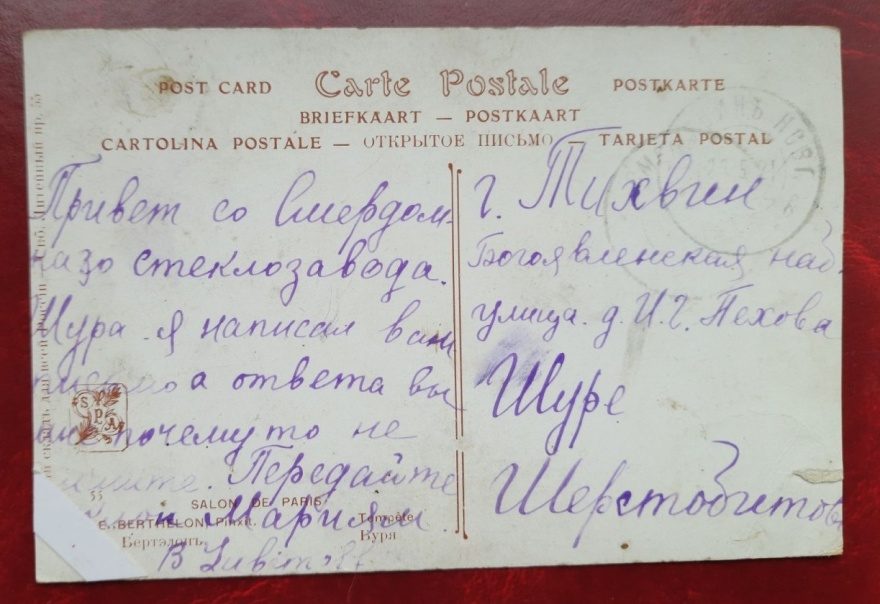 POST CARD Carte Postale POSTKARTE
BRIEFKAART — POSTKAART
CARTOLINA POSTALE — ОТКРЫТОЕ ПИСЬМО — TARJETA POSTAL
Привет со Смердом-
стеклозавода.
Шура я написал вам
письмо а ответа вы
мне почему то не
Передайте
Марии
г. Тихвин
Богоявленская наб.
улица д. И. Г. Пехова
Шуре
Шерстобитов
S.P.A
55
SALON DE PARIS
E. BERTHELON Pinxit.
Бертэлонъ
Tempête
Буря
НОВГ.
Литейный пр. 55